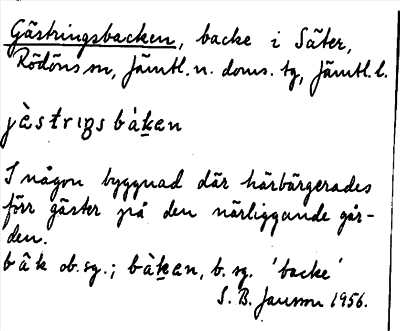 Gästringsbacken, backe i Säter,
Rödöns sn, Jämtl. n. doms. tg, Jämtl. l.
jὲstrıŋsbàḵen
I någon byggnad där härbärgerades
förr gäster på den närliggande går-
den.
bâk ob. sg.; bàḵen, b. sg. 'backe'
S. B. Jansson 1956.